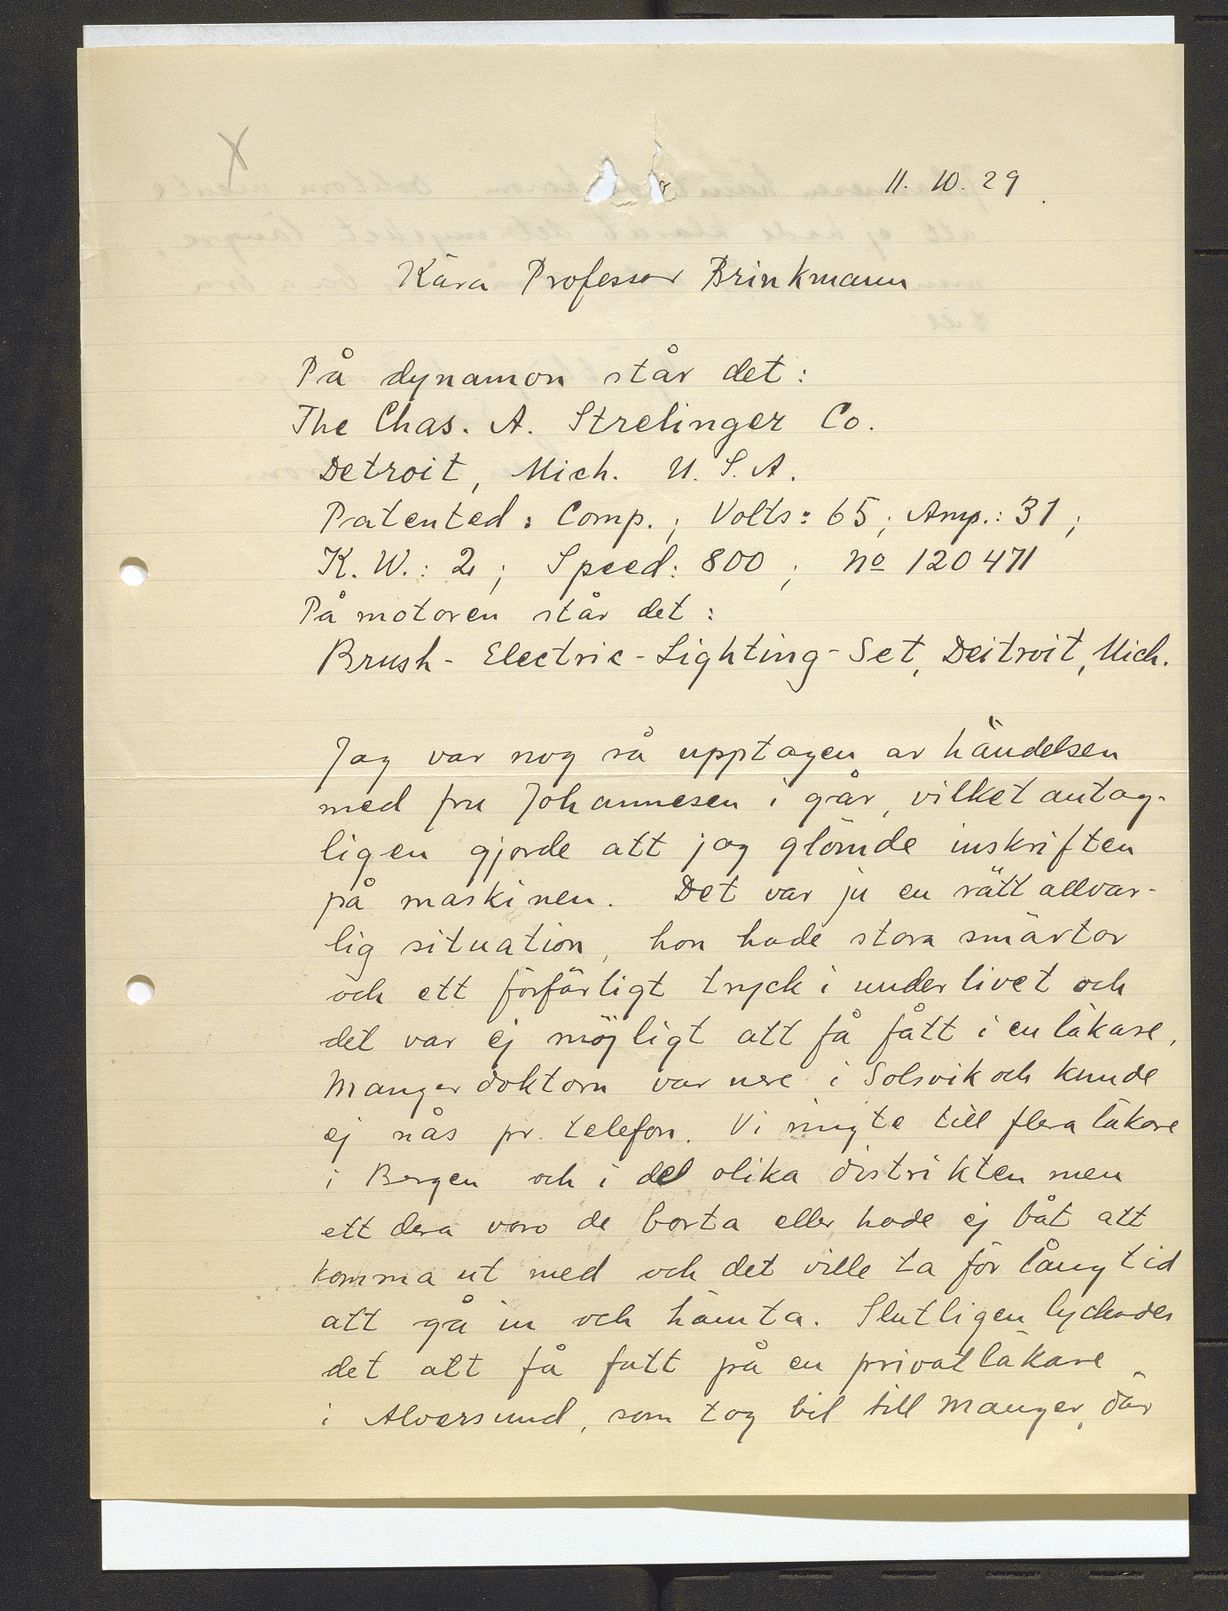 11. 10. 29
Kära Professor Brinkmann
På dynamon står det:
The Chas. A. Strelinger Co.
Detroit, Mich. U. S. A.
Patented: Comp.; Volts: 65; Amp.: 31;
K. W.: 2; Speed: 800; No 120471
På motoren står det:
Brush-Electric-Lighting-Set, Deitroit, Mich.
Jag var nog så upptagen av händelsen
med fru Johannesen i går, vilket antag-
ligen gjorde att jag glömde inskriften
på maskinen. Det var ju en rätt allvar-
lig situation, hon hade stora smärtor
och ett förfärligt tryck i underlivet och
det var ej möjligt att få fått i en läkare,
Manger doktorn var nere i Solsvik och kunde
ej nås pr. telefon. Vi ringte till flera läkare
i Bergen och i de olika distrikten men
ett dera voro de borta eller hade ej båt att
komma ut med och det ville ta för lång tid
att gå in och hämta. Slutligen lyckades
det att få fatt på en privatläkare
i Alversund, som tog bil till Manger, där